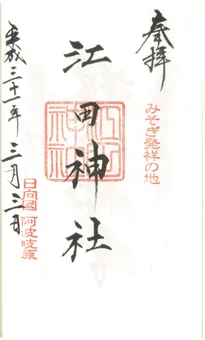 奉拝
みそぎ発祥の地
江田神社
日向國 阿波岐原
平成三十一年 三月三日